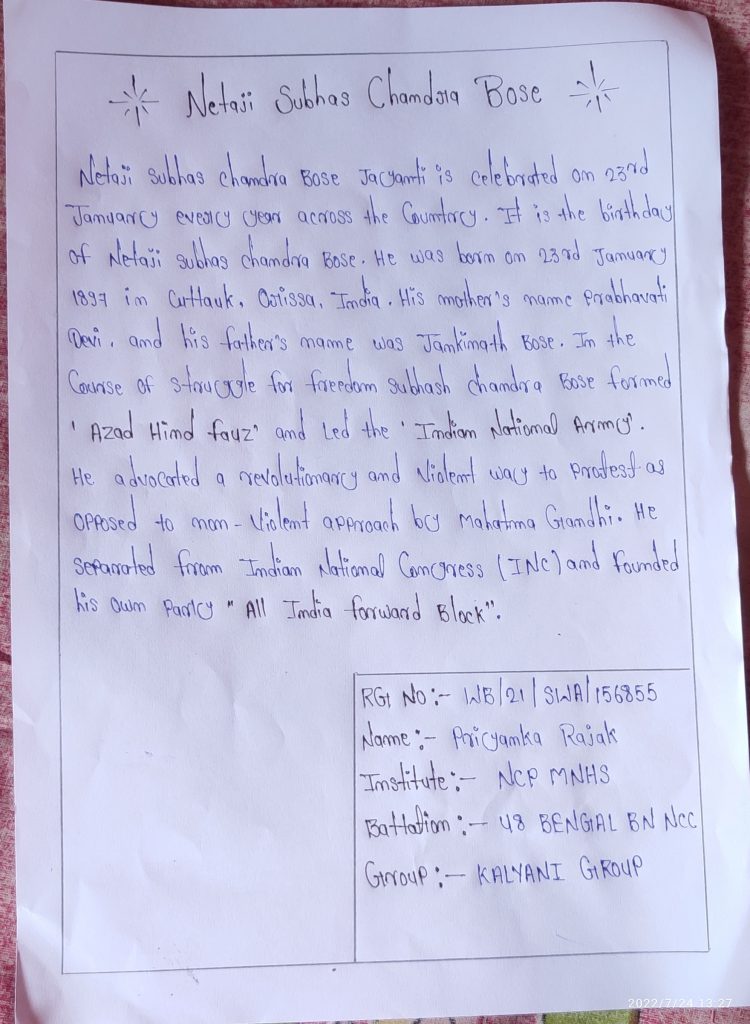 Netaji Subhas Chandra Bose
Netaji Subhas Chandra Bose Jayanti is celebrated on 23rd
January every year across the Country. It is the birthday
of Netaji Subhas Chandra Bose. He was born on 23rd January
1897 in Cuttauk, Orissa, India. His mother's name Prabhavati
Devi, and his father's name was Jankinath Bose. In the
Course of struggle for freedom Subhash Chandra Bose formed
'Azad Hind fauz' and Led the 'Indian National Army'.
He advocated a revolutionary and Violent way to Protest as
opposed to non-Violent approach by Mahatma Gandhi. He
separated from Indian National Congress (INC) and founded
his own Party "All India forward Block".
RGt No:- WB/21/SWA/156855
Name:- Priyanka Rajak
Institute:- NCP MNHS
Battalion:- 48 BENGAL BN NCC
Group:- KALYANI GROUP
2022/7/24 13:27